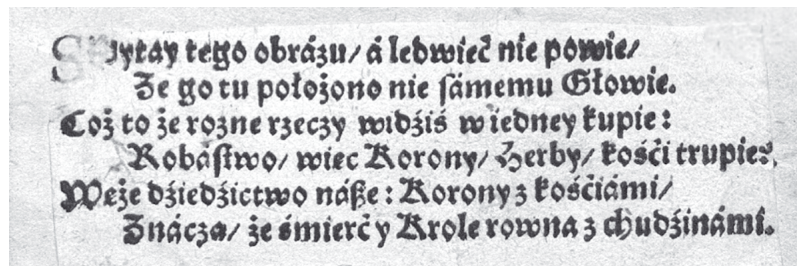 Spytay tego obrázu/ á ledwieć nie powie/
Że go tu położono nie sámemu Głowie.
Coż to że rozne rzeczy widźiś w iedney kupie:
Robáſtwo/ wiec Korony/ Herby/ kośći trupie?,
Węże dźiedźictwo náße: Korony z kośćiámi/
Znácza/ że śmierć y Krole rowna z chudźinámi.